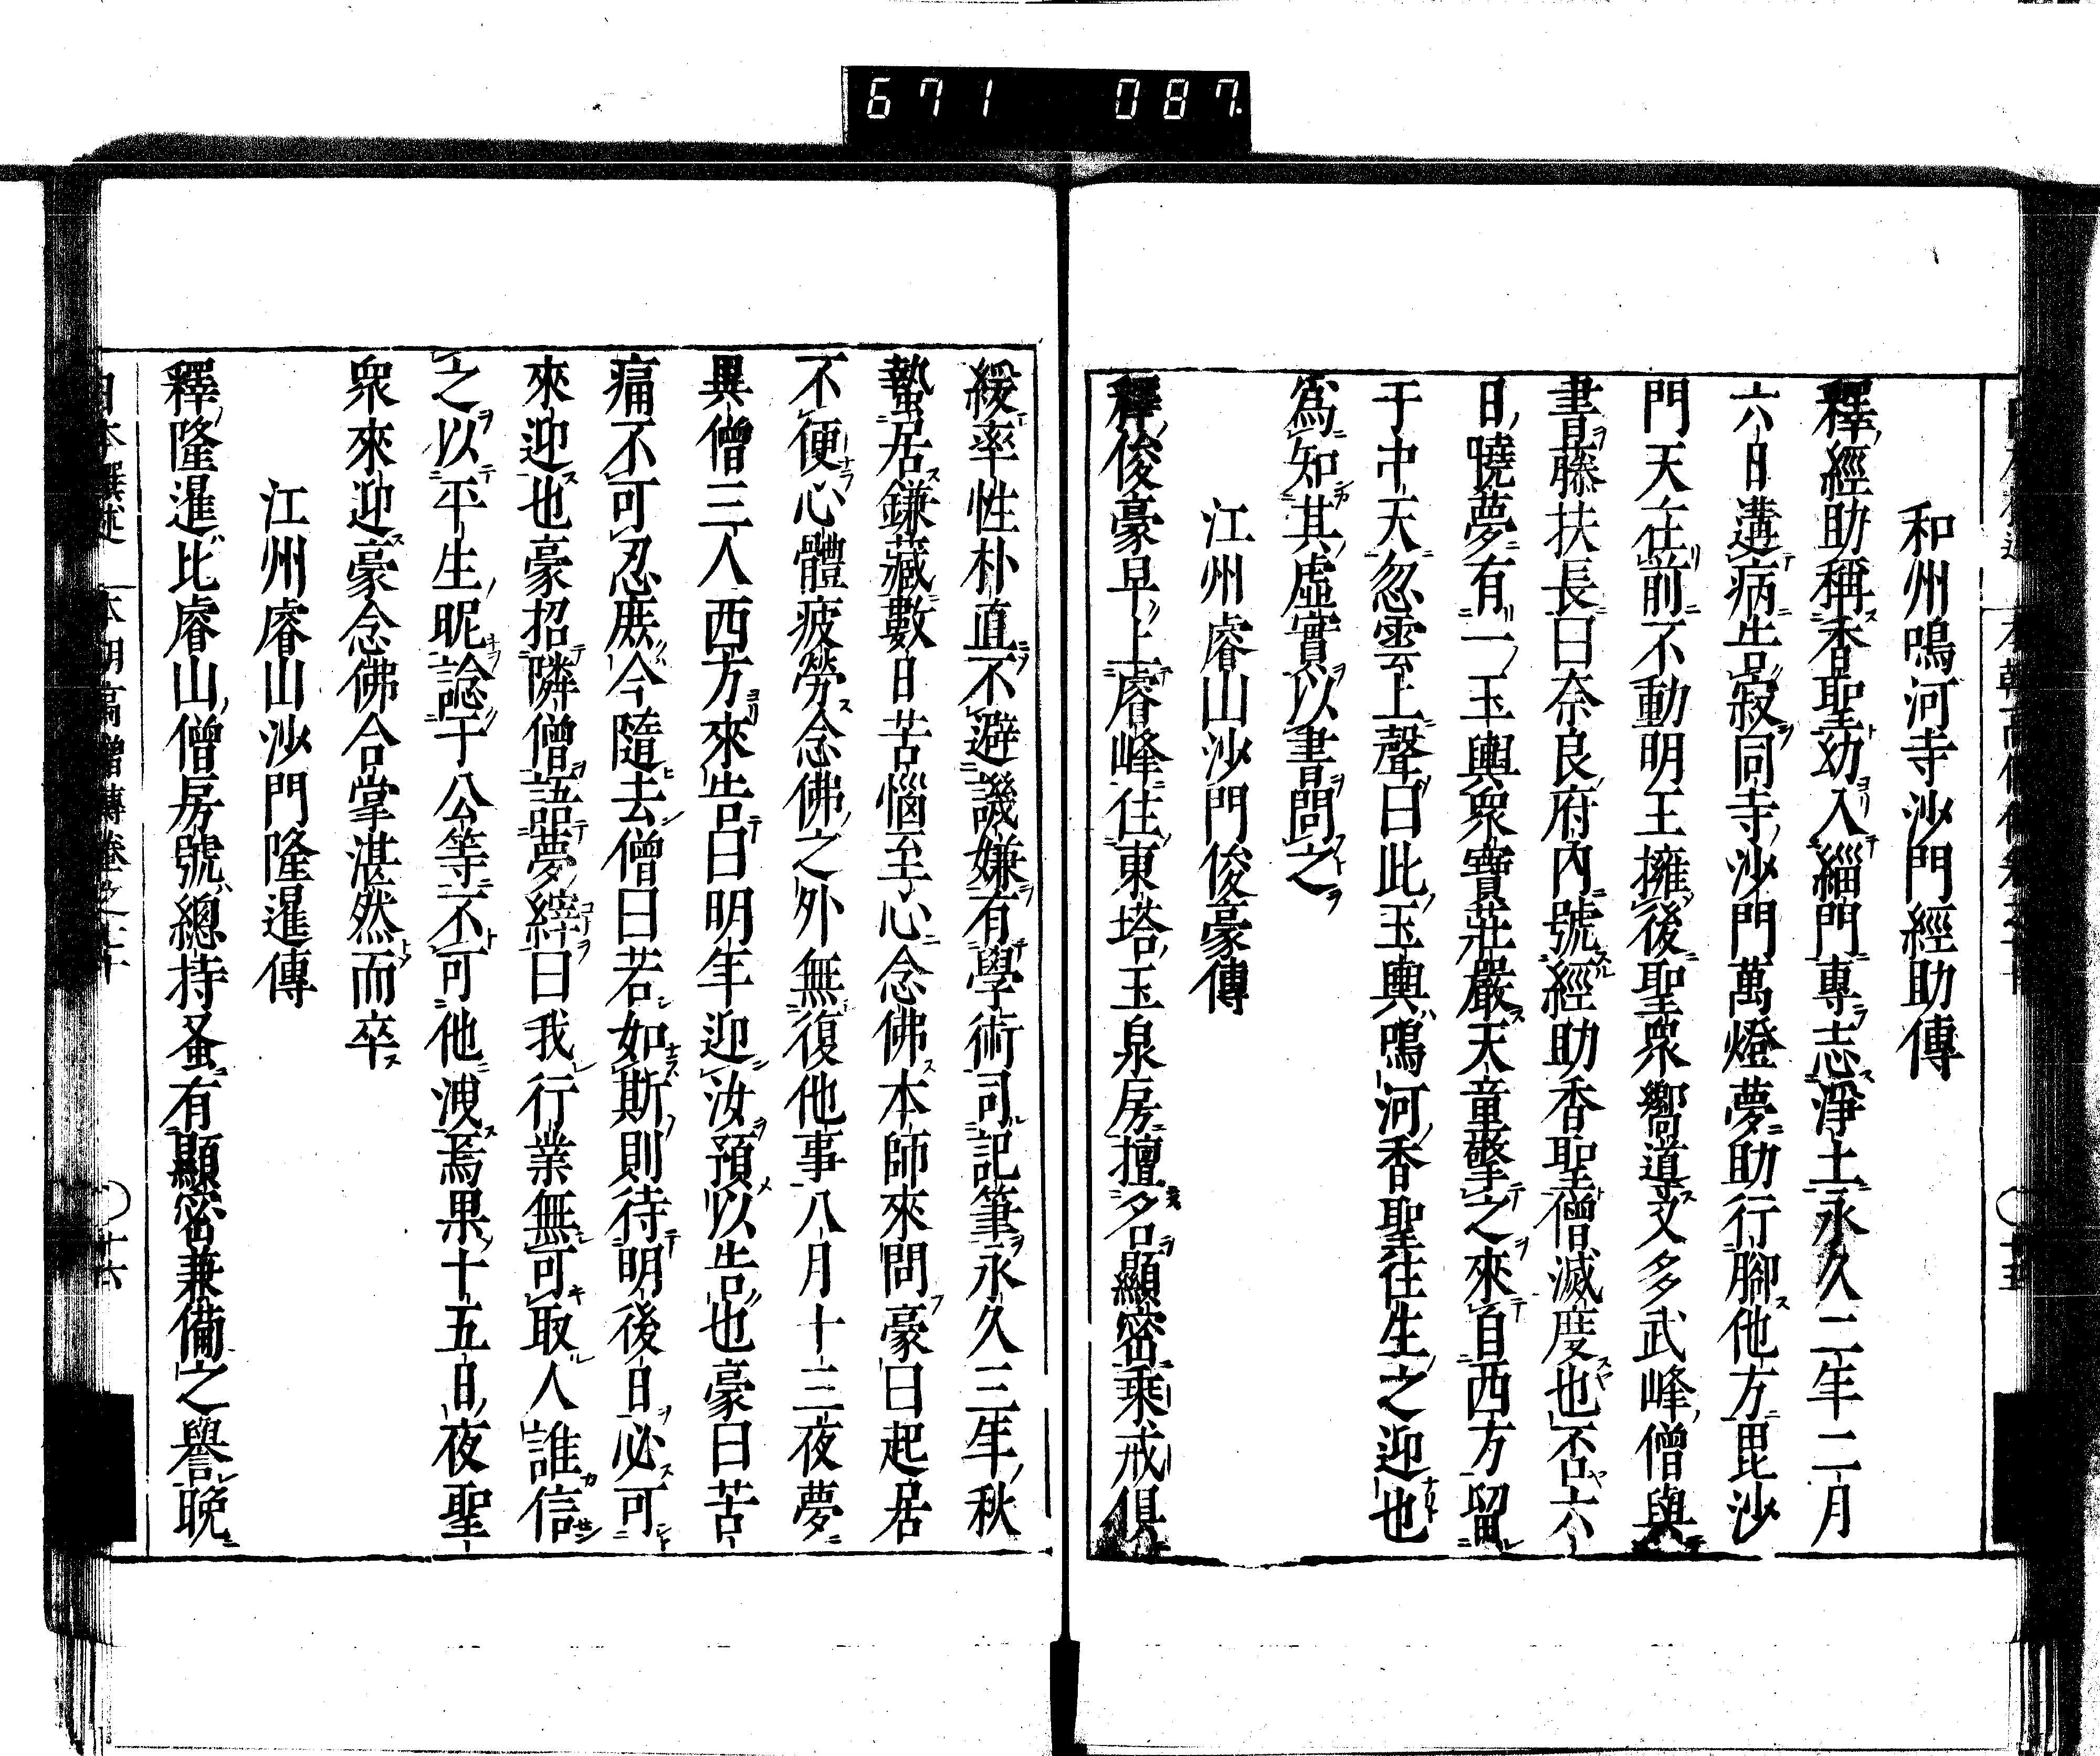 671 087
和州鳴河寺沙門經助傳
釋經助稱香聖幼入緇門專志淨土永久二年二月
六日遘病告寂同寺沙門萬燈夢助行腳他方毘沙
門天在前不動明王擁後聖衆嚮道又多武峰僧與
書藤扶長曰奈良府內號經助香聖僧滅度也否六
日曉夢有一玉輿衆寶莊嚴天童擎之來自西方留
于中天忽雲上聲曰此玉輿鳴河香聖往生之迎也
爲知其虛實以書問之
江州睿山沙門俊豪傳
釋俊豪早上睿峰住東塔玉泉房擅名顯密乘戒俱
緩率性朴直不避譏嫌有學術司記筆永久三年秋
蟄居鎌藏數日苦惱至心念佛本師來問豪曰起居
不便心體疲勞念佛之外無復他事八月十三夜夢
異僧三人西方來告曰明年迎汝預以告也豪曰苦
痛不可忍庶今隨去僧曰若如斯則待明後日必可
來迎也豪招隣僧語夢縡曰我行業無可取人誰信
之以平生昵諗于公等不可他洩焉果十五日夜聖
衆來迎豪念佛合掌湛然而卒
江州睿山沙門隆暹傳
釋隆暹比睿山僧房號總持蚤有顯密兼備之譽晚
日本撰述 本朝高僧傳卷之 十六